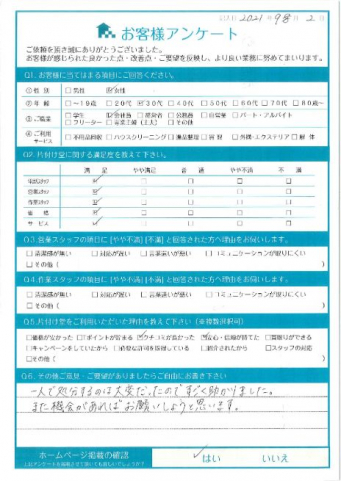 2021年9月2日
お客様アンケート
ご依頼を頂き誠にありがとうございました。
お客様が感じられた良かった点・改善点・ご要望を反映し、より良い業務に努めてまいります。
Q1. お客様に当てはまる項目にご回答ください。
① 性 別 □ 男性 ☑ 女性
② 年 齢 □ ～19歳 □ 20代 ☑ 30代 □ 40代 □ 50代 □ 60代 □ 70代 □ 80歳～
③ ご職業 □ 学生 ☑ 会社員 □ 公務員 □ 自営業 □ パート・アルバイト
□ フリーター □ 専業主婦（主夫） □ その他
④ ご利用サービス □ 不用品回収 □ ハウスクリーニング □ 遺品整理 □ 外構・エクステリア □ 解 体
Q2. 片付け堂に関する満足度を教えて下さい。
満 足 やや満足 普 通 やや不満 不 満
電話スタッフ ☑ □ □ □ □
営業スタッフ ☑ □ □ □ □
作業スタッフ ☑ □ □ □ □
価 格 ☑ □ □ □ □
サービス ☑ □ □ □ □
Q3. 営業スタッフの項目に [やや不満] [不満] と回答された方へ理由をお伺いします。
□ 清潔感が無い □ 対応が遅い □ 言葉遣いが悪い □ コミュニケーションが取りにくい
□ その他 ( )
Q4. 作業スタッフの項目に [やや不満] [不満] と回答された方へ理由をお伺いします。
□ 清潔感が無い □ 対応が遅い □ 言葉遣いが悪い □ コミュニケーションが取りにくい
□ その他 ( )
Q5. 片付け堂をご利用いただいた理由を教えて下さい（※複数選択可）
□ 価格が安かった □ ポイントが貯まる ☑ クチコミが良かった ☑ 安心・信頼が持てた □ 買取りができる
□ キャンペーンをしていたから □ 必要な許可を取得している □ 紹介されたから □ スタッフの対応
□ その他 ( )
Q6. その他ご意見・ご要望がありましたらご自由にお書き下さい
一人で処分するのは大変だったのですごく助かりました。
また機会があればお願いしようと思います。
ホームページ掲載の確認
上記アンケートを掲載させて頂いても宜しいでしょうか？
はい いいえ